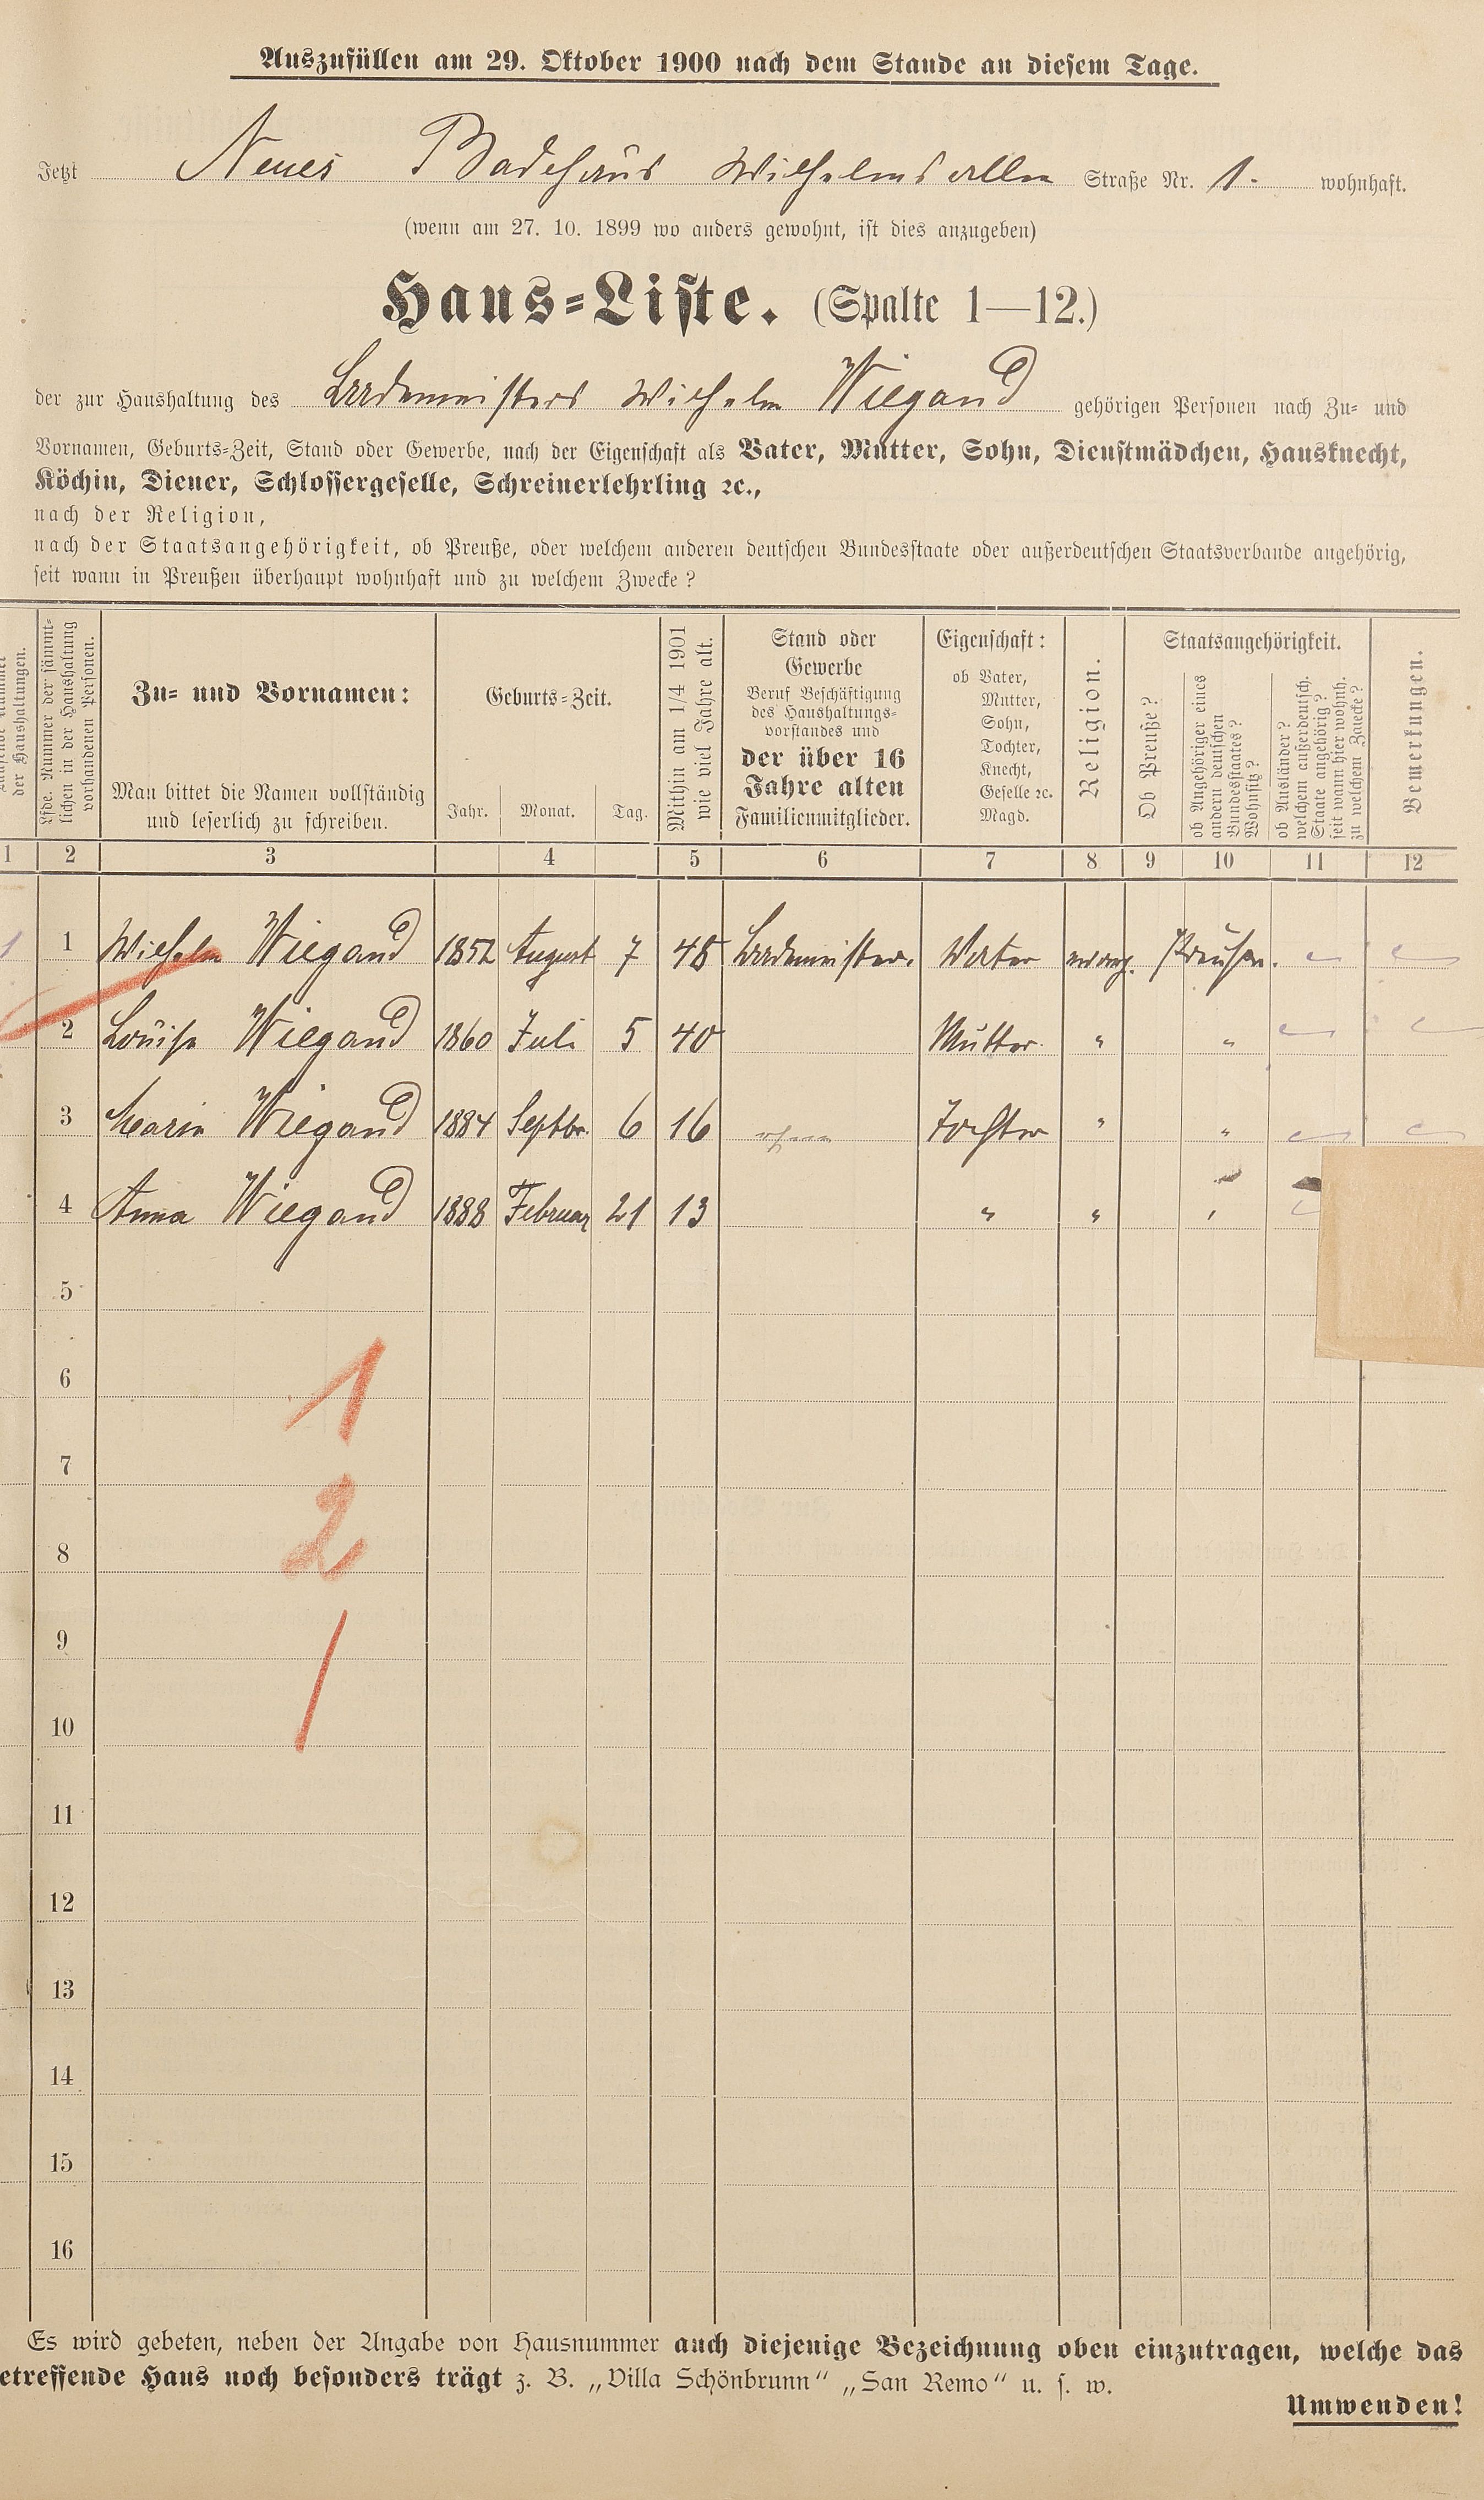 Auszufüllen am 29. Oktober 1900 nach dem Stande an diesem Tage.
Jetzt Neues Badehaus Wilhelmsallee Straße Nr. 1. wohnhaft.
(wenn am 27. 10. 1899 wo anders gewohnt, ist dies anzugeben)
Haus-Liste. (Spalte 1—12.)
der zur Haushaltung des Bademeisters Wilhelm Wiegand gehörigen Personen nach Zu- und
Vornamen, Geburts-Zeit, Stand oder Gewerbe, nach der Eigenschaft als Vater, Mutter, Sohn, Dienstmädchen, Hausknecht,
Köchin, Diener, Schlossergeselle, Schreinerlehrling ꝛc.,
nach der Religion,
nach der Staatsangehörigkeit, ob Preuße, oder welchem anderen deutschen Bundesstaate oder außerdeutschen Staatsverbande angehörig,
seit wann in Preußen überhaupt wohnhaft und zu welchem Zwecke?
der Haushaltungen.
Lfde. Nummer der sämmt-
lichen in der Haushaltung
vorhandenen Personen.
Zu- und Vornamen:
Man bittet die Namen vollständig
und leserlich zu schreiben.
Geburts-Zeit.
Jahr. Monat. Tag.
Mithin am 1/4 1901
wie viel Jahre alt.
Stand oder
Gewerbe
Beruf Beschäftigung
des Haushaltungs-
vorstandes und
der über 16
Jahre alten
Familienmitglieder.
Eigenschaft:
ob Vater,
Mutter,
Sohn,
Tochter,
Knecht,
Geselle ꝛc.
Magd.
Religion.
Staatsangehörigkeit.
Ob Preuße?
ob Angehöriger eines
andern deutschen
Bundesstaates?
Wohnsitz?
ob Ausländer?
welchem außerdeutsch.
Staate angehörig?
seit wann hier wohnh.
zu welchem Zwecke?
Bemerkungen.
1 2 3 4 5 6 7 8 9 10 11 12
1 1 Wilhelm Wiegand 1852 August 7 48 Bademeister. Vater evang. Preußen.
2 Louise Wiegand 1860 Juli 5 40 Mutter. " "
3 Marie Wiegand 1884 Septbr. 6 16 ohne Tochter " "
4 Anna Wiegand 1888 Februar 21 13 " " "
5
6
1
7
2
8
9
1
10
11
12
13
14
15
16
Es wird gebeten, neben der Angabe von Hausnummer auch diejenige Bezeichnung oben einzutragen, welche das
etreffende Haus noch besonders trägt z. B. „Villa Schönbrunn" „San Remo" u. s. w.
Umwenden!